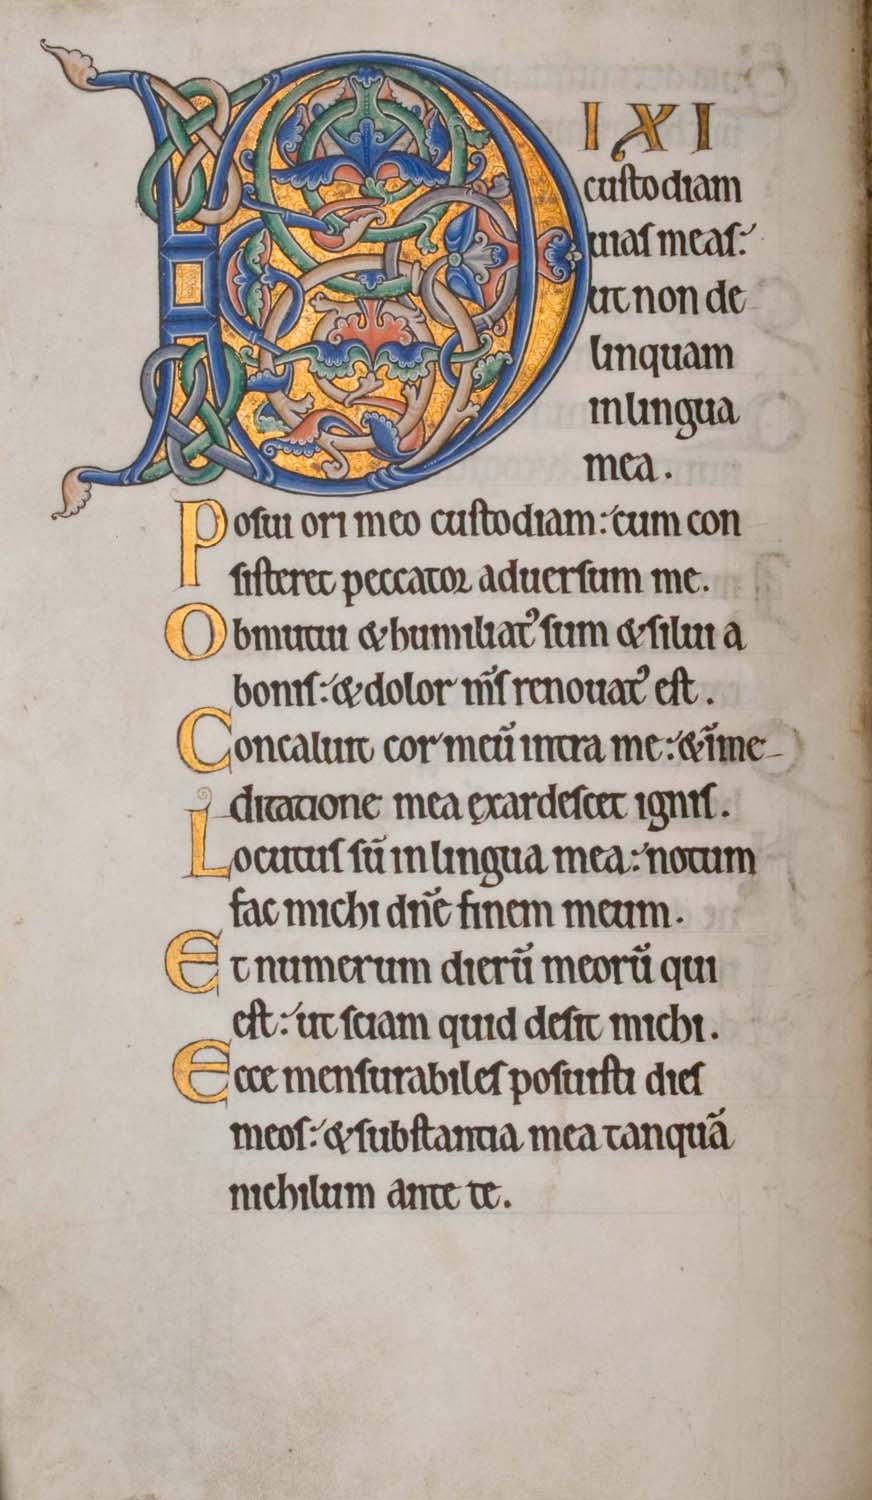 DIXI
custodiam
uias meas:
ut non de
linquam
in lingua
mea.
Posui ori meo custodiam: cum con
sisteret peccator aduersum me.
Obmutui & humiliatꝰ sum & silui a
bonis: & dolor m̄s renouatꝰ est.
Concaluit cor meū intra me: & ī me-
ditatione mea exardescet ignis.
Locutus sū in lingua mea: notum
fac michi dn̄e finem meum.
Et numerum dierū meorū qui
est: ut sciam quid desit michi.
Ecce mensurabiles posuisti dies
meos: & substantia mea tanquā
nichilum ante te.